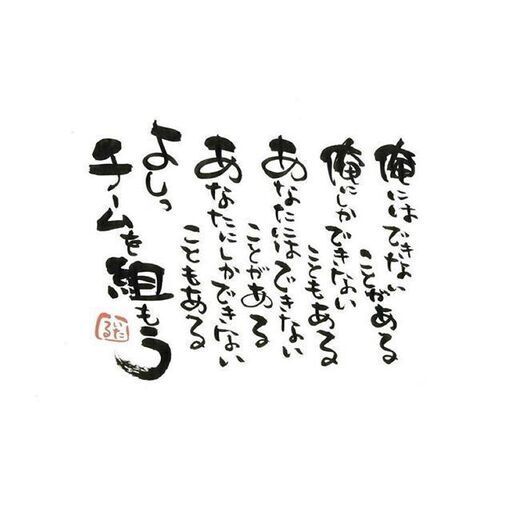 俺にはできない
ことがある
俺にしかできない
こともある
あなたにはできない
ことがある
あなたにしかできない
こともある
よしっ
チームを組もう
いたる